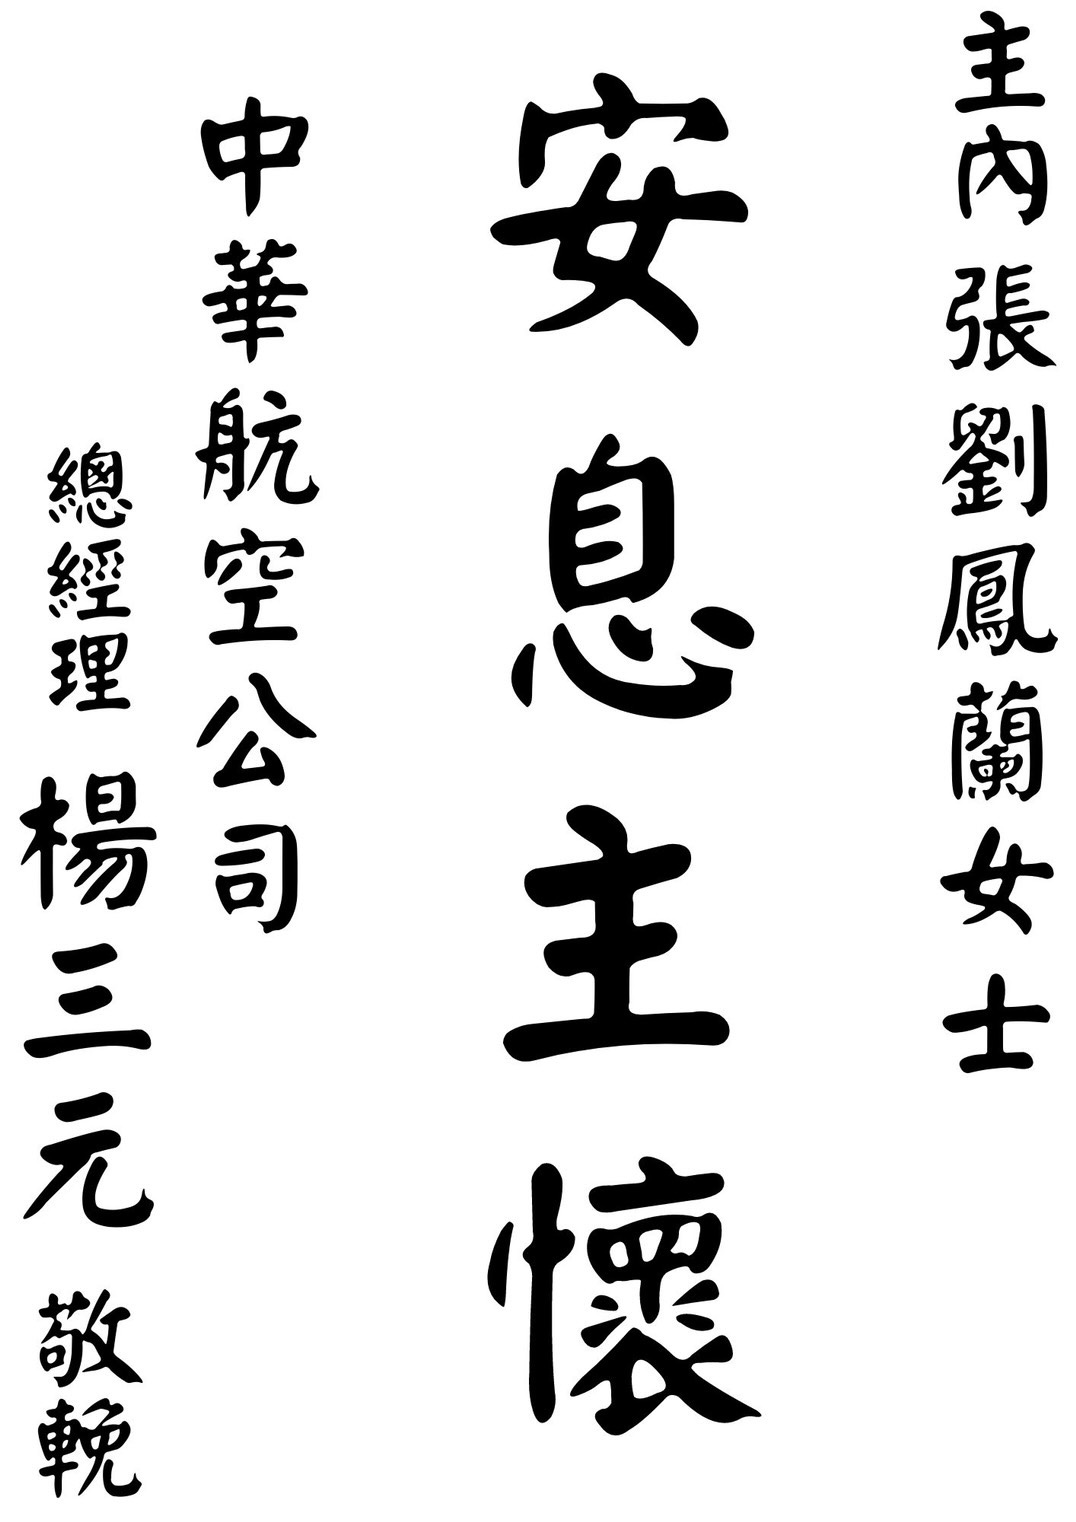 主內 張劉鳳蘭女士
安息主懷
中華航空公司
總經理 楊三元 敬輓